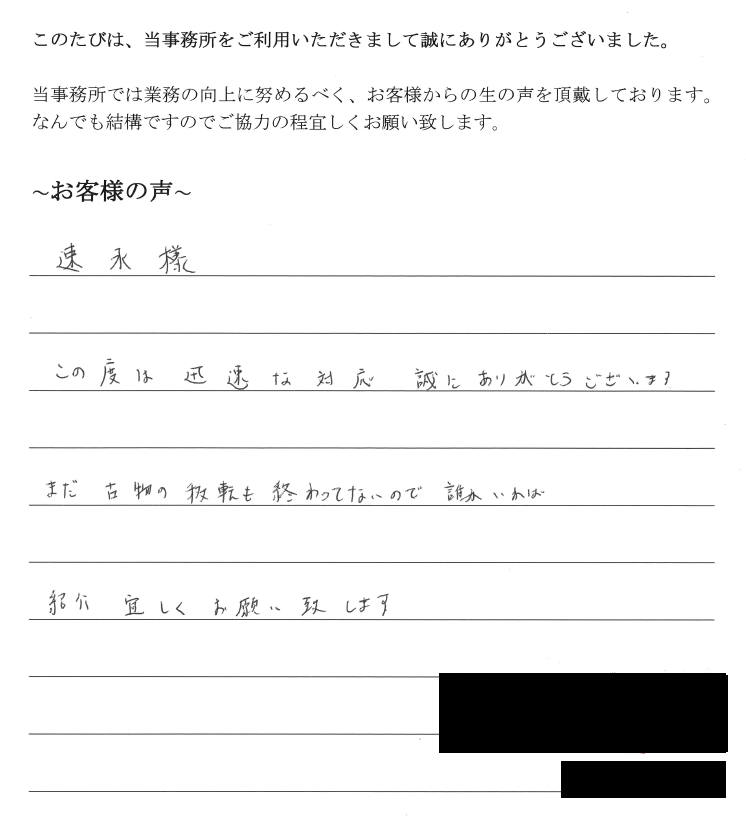 このたびは、当事務所をご利用いただきまして誠にありがとうございました。
当事務所では業務の向上に努めるべく、お客様からの生の声を頂戴しております。
なんでも結構ですのでご協力の程宜しくお願い致します。
~お客様の声~
速永様
この度は 迅速な対応 誠にありがとうございます
まだ 古物の 移転も 終わってないので 誰かいれば
紹介 宜しく お願い 致します